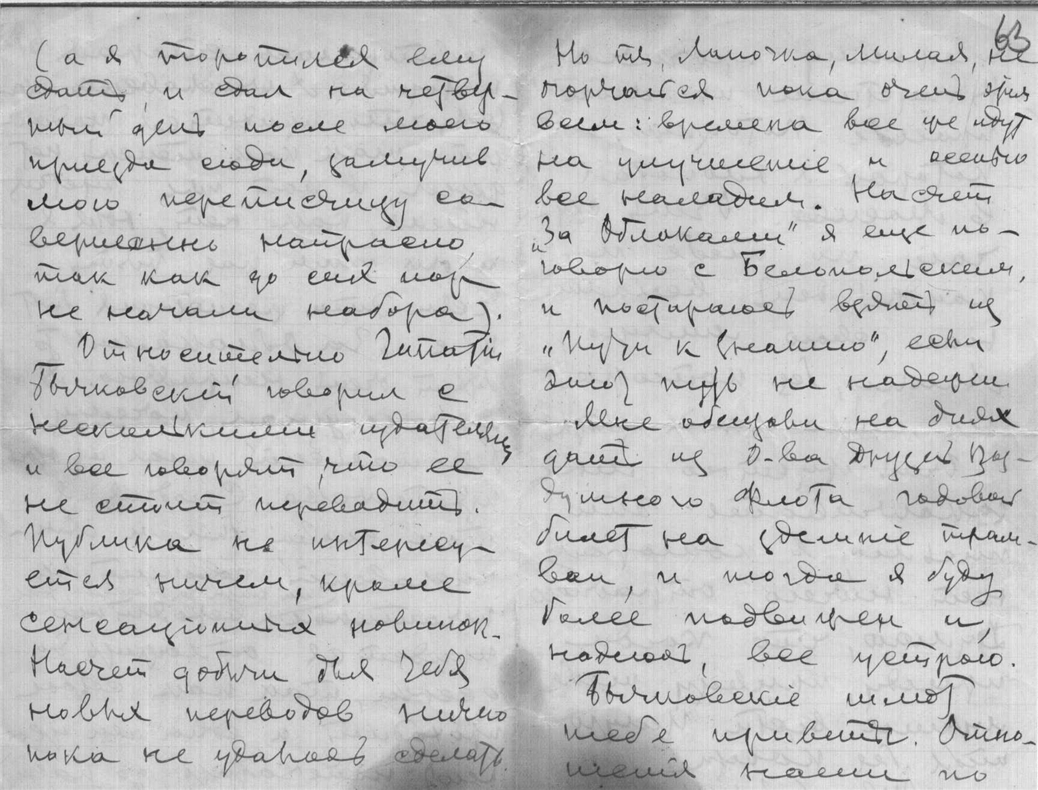 (а я торопился ему
сдать, и сдал на четвер-
тый день после моего
приезда сюда, замучив
мою переписчицу со-
вершенно напрасно
так как до сих пор
не начали набора).
Относительно Гипатiи
Бычковскiй говорил с
несколькими издателями
и все говорят, что ее
не стоит переводить.
Публика не интересу-
ется ничем, кроме
сенсацiонных новинок.
Насчет добычи для Тебя
новых переводов ничего
пока не удалось сделать.
63
Но ты, Линочка, милая, не
огорчайся пока очень этим
всем: времена все же идут
на улучшенiе и осенью
все наладим. Насчет
„За Облаками" я еще по-
говорю с Белопольским,
и постараюсь взять из
„Пути к Знанiю", если
этот путь не надежен
Мне обещали на днях
дать из О-ва Друзей Воз-
душного Флота годовой
билет на здешнiе трам-
ваи, и тогда я буду
более подвижен и,
надеюсь, все устрою.
Бычковскiе шлют
тебе приветы. Отно-
шенiя наши по